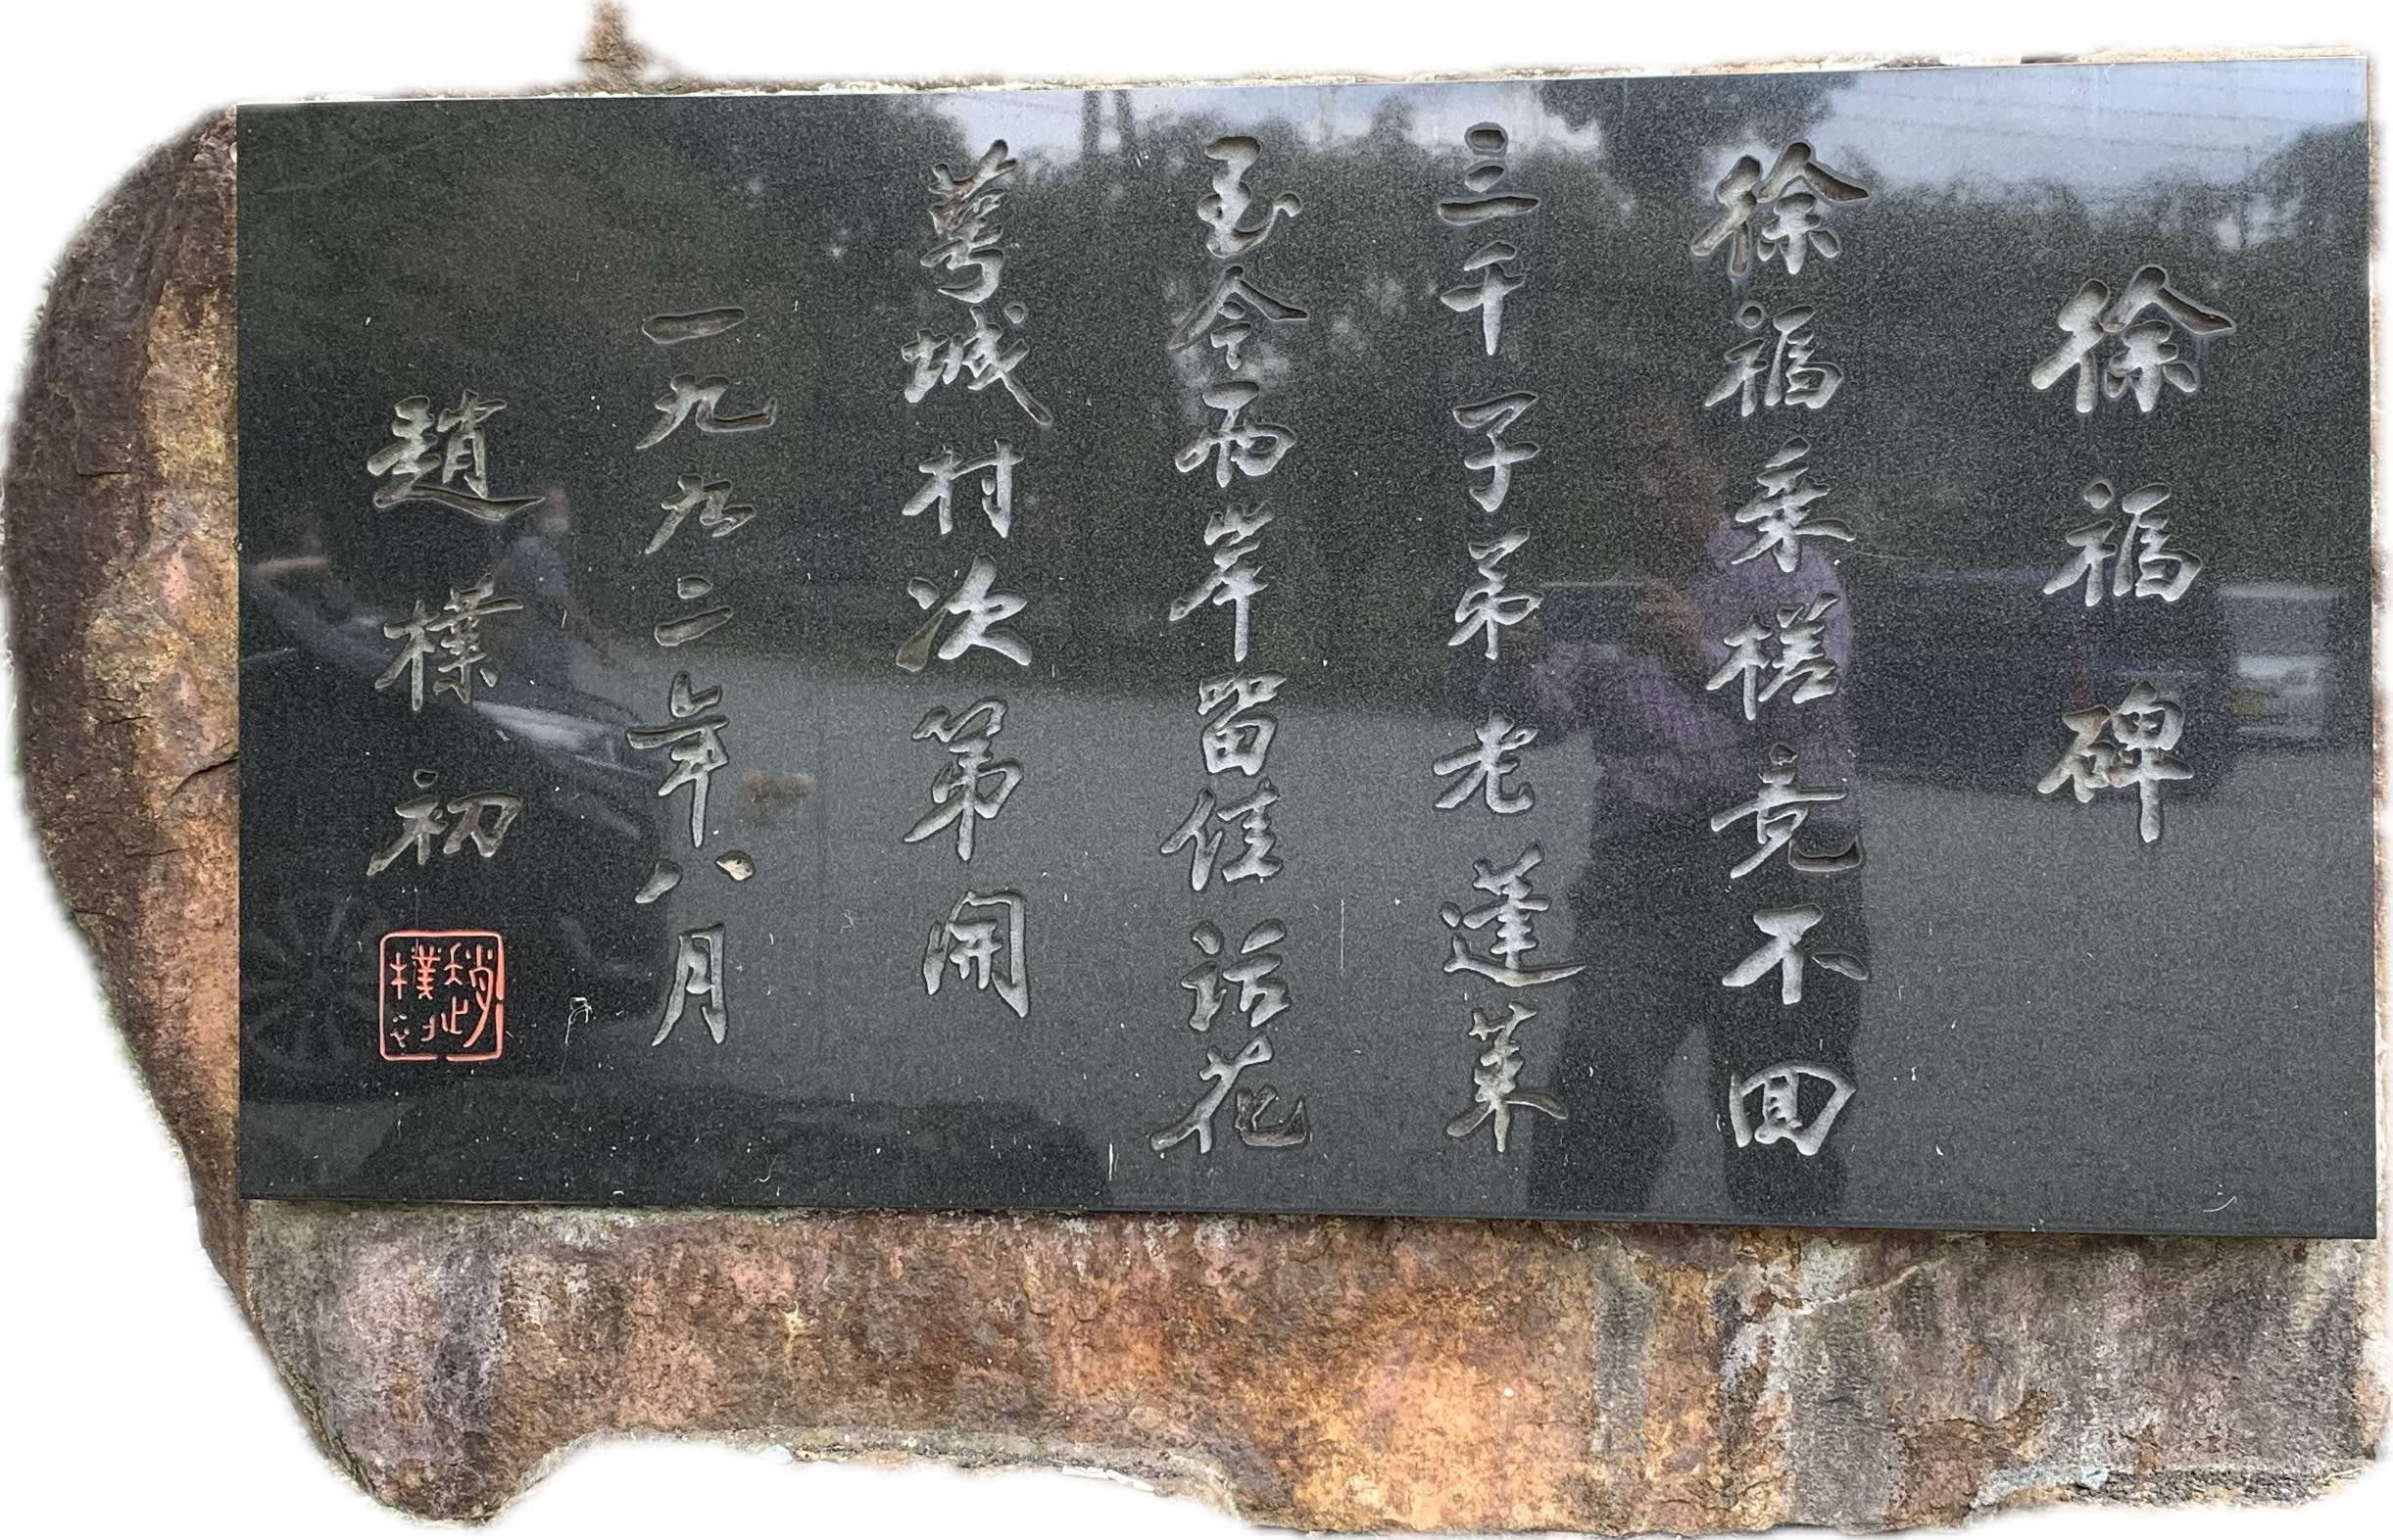 徐福碑
徐福乘槎竟不回
三千子弟老蓬莱
至今两岸留佳話花
萼城村次第開
一九九二年八月
趙樸初